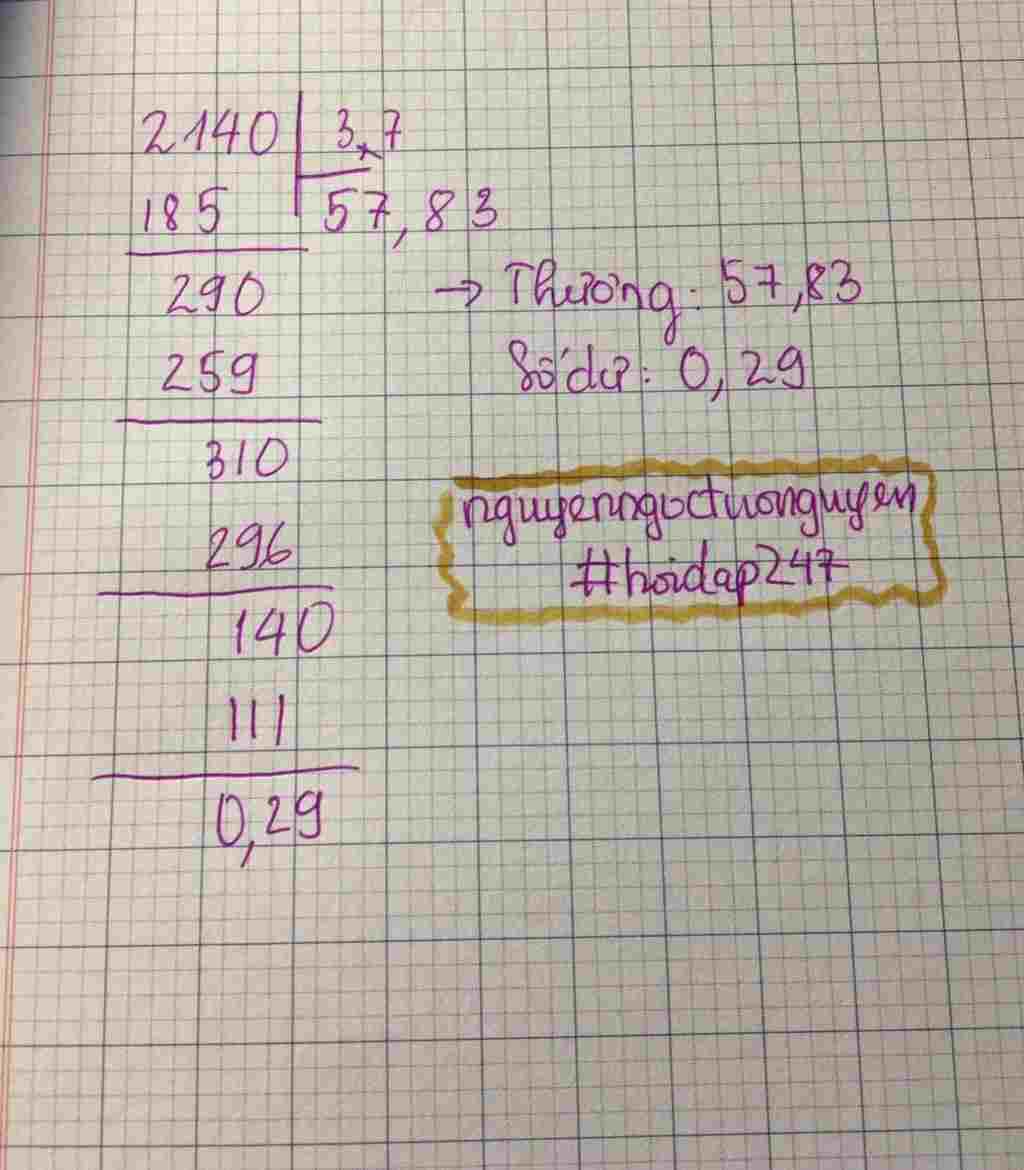 2140 3,7
185 57,83
290 → Thương: 57,83
259 Số dư: 0,29
310
nguyenngoctuonguyen
296
#hoidap247
140
111
0,29